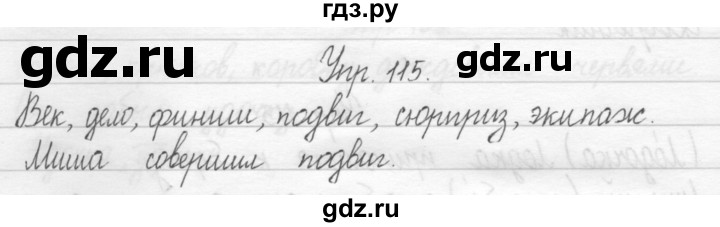 гдз.ру
gdz.ru gdz.ru
Упр. 115.
Век, дело, финиш, подвиг, сюрприз, экипаж.
Миша совершил подвиг.
gdz.ru gdz.ru